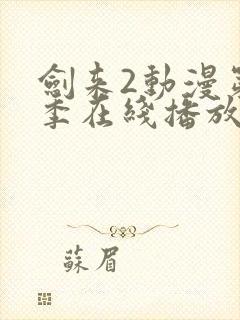 劍来2動漫
季在綫播放
蘇眉